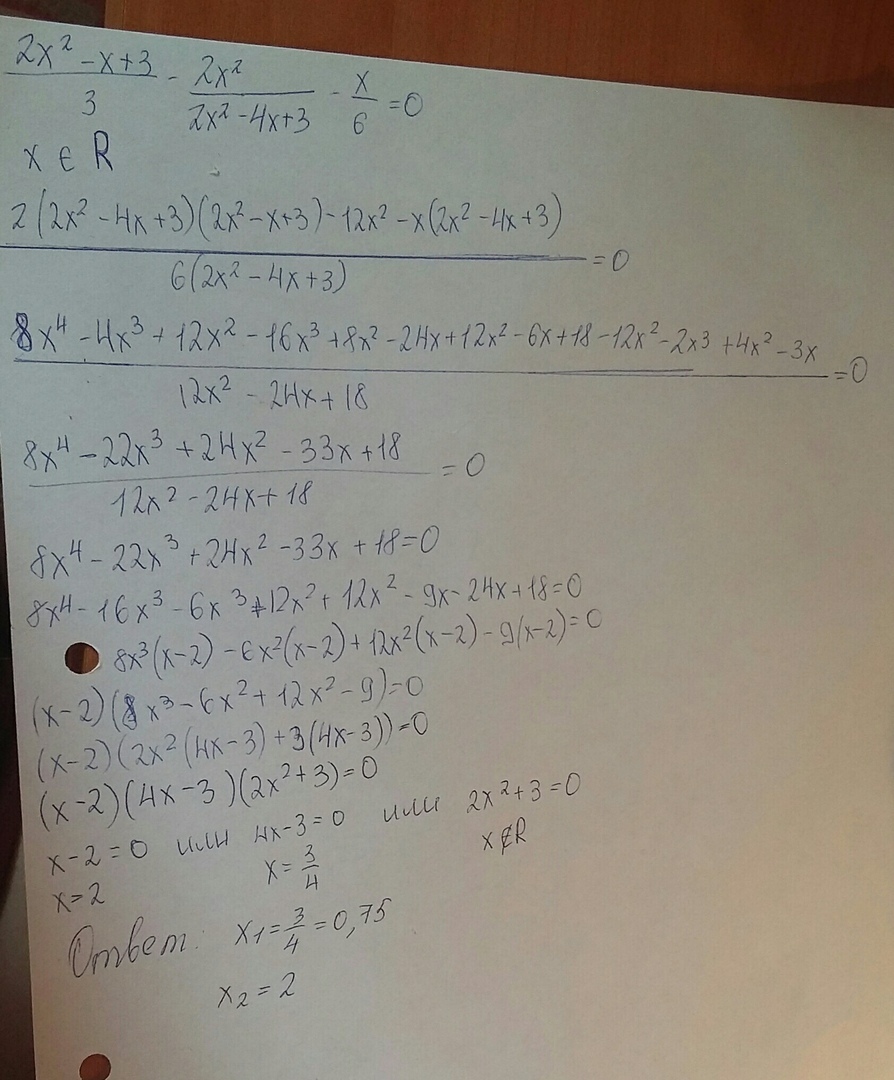 (2x² - x + 3)/3 - 2x²/(2x² - 4x + 3) - x/6 = 0
x ∈ R
(2(2x² - 4x + 3)(2x² - x + 3) - 12x² - x(2x² - 4x + 3))/(6(2x² - 4x + 3)) = 0
(8x⁴ - 4x³ + 12x² - 16x³ + 8x² - 24x + 12x² - 6x + 18 - 12x² - 2x³ + 4x² - 3x)/(12x² - 24x + 18) = 0
(8x⁴ - 22x³ + 24x² - 33x + 18)/(12x² - 24x + 18) = 0
8x⁴ - 22x³ + 24x² - 33x + 18 = 0
8x⁴ - 16x³ - 6x³ + 12x² + 12x² - 9x - 24x + 18 = 0
8x³(x-2) - 6x²(x-2) + 12x²(x-2) - 9(x-2) = 0
(x-2)(8x³ - 6x² + 12x² - 9) = 0
(x-2)(2x²(4x-3) + 3(4x-3)) = 0
(x-2)(4x-3)(2x²+3) = 0
x-2 = 0 или 4x-3 = 0 или 2x²+3 = 0
x = 2 x = 3/4 x ∉ R
Ответ: x₁ = 3/4 = 0,75
x₂ = 2